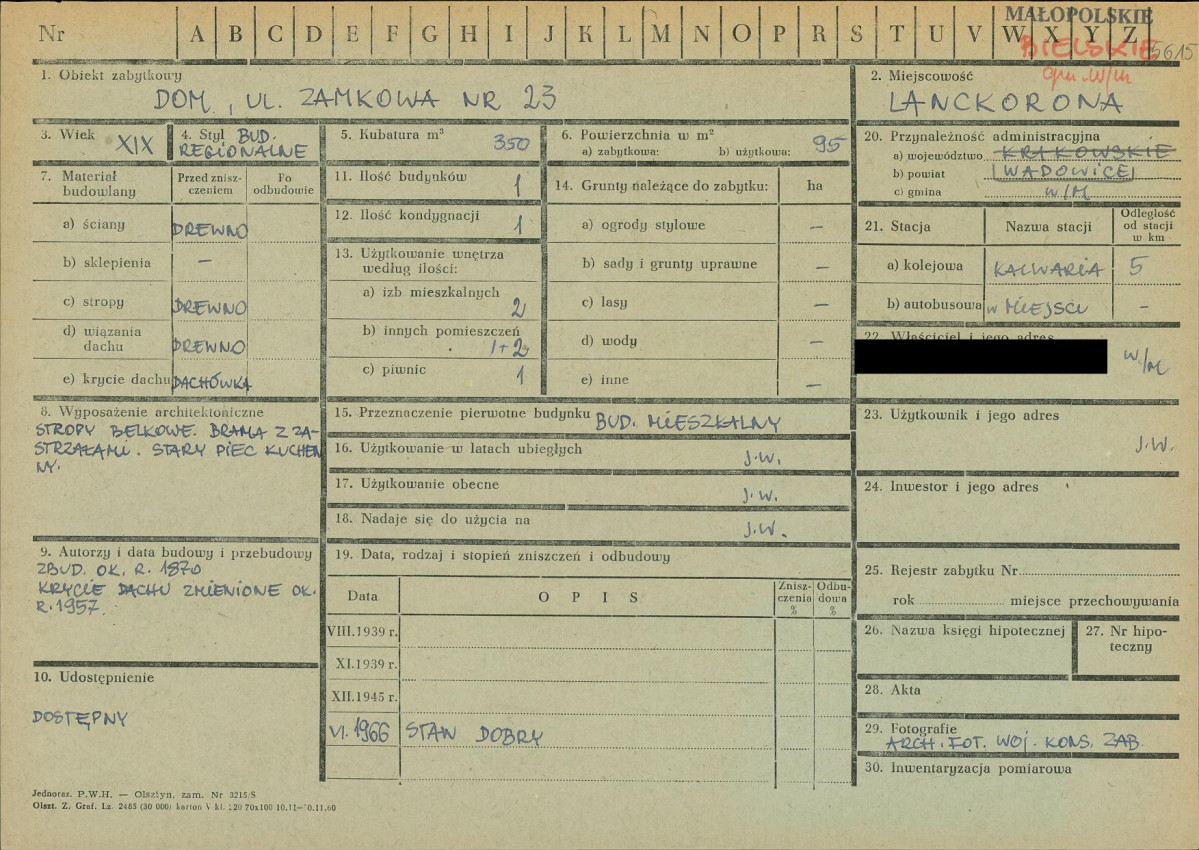 Nr A B C D E F G H I J K L M N O P R S T U V W X Y Z
MAŁOPOLSKIE
BIELSKIE 5615
gm. w/m
1. Obiekt zabytkowy
DOM, UL. ZAMKOWA NR 23
2. Miejscowość
LANCKORONA
3. Wiek XIX
4. Styl BUD.
REGIONALNE
5. Kubatura m³ 350
6. Powierzchnia w m²
a) zabytkowa: b) użytkowa: 95
7. Materiał
budowlany
Przed znisz-
czeniem
Po
odbudowie
a) ściany DREWNO
b) sklepienia –
c) stropy DREWNO
d) wiązania
dachu DREWNO
e) krycie dachu DACHÓWKA
8. Wyposażenie architektoniczne
STROPY BELKOWE. BRAMA Z ZA-
STRZAŁAMI. STARY PIEC KUCHEN
NY.
9. Autorzy i data budowy i przebudowy
ZBUD. OK. R. 1870
KRYCIE DACHU ZMIENIONE OK.
R. 1957.
10. Udostępnienie
DOSTĘPNY
11. Ilość budynków 1
12. Ilość kondygnacji 1
13. Użytkowanie wnętrza
według ilości:
a) izb mieszkalnych 2
b) innych pomieszczeń
1+2
c) piwnic 1
14. Grunty należące do zabytku: ha
a) ogrody stylowe –
b) sady i grunty uprawne –
c) lasy –
d) wody –
e) inne –
15. Przeznaczenie pierwotne budynku BUD. MIESZKALNY
16. Użytkowanie w latach ubiegłych J.W.
17. Użytkowanie obecne J.W.
18. Nadaje się do użycia na J.W.
19. Data, rodzaj i stopień zniszczeń i odbudowy
Data O P I S
Znisz-
czenia
%
Odbu-
dowa
%
VIII.1939 r.
XI.1939 r.
XII.1945 r.
VI. 1966 STAN DOBRY
20. Przynależność administracyjna
a) województwo KRAKOWSKIE
b) powiat WADOWICE
c) gmina W/M
21. Stacja Nazwa stacji
Odległość
od stacji
w km
a) kolejowa KALWARIA 5
b) autobusowa w MIEJSCU –
22. Właściciel i jego adres
W/M
23. Użytkownik i jego adres
J.W.
24. Inwestor i jego adres
25. Rejestr zabytku Nr
rok miejsce przechowywania
26. Nazwa księgi hipotecznej
27. Nr hipo-
teczny
28. Akta
29. Fotografie
ARCH. FOT. WOJ. KONS. ZAB.
30. Inwentaryzacja pomiarowa
Jednoraz. P.W.H. — Olsztyn, zam. Nr 3215/S
Olszt. Z. Graf. Lz. 2485 (30 000) karton V kl. 220 70x100 10.11—10.11.60